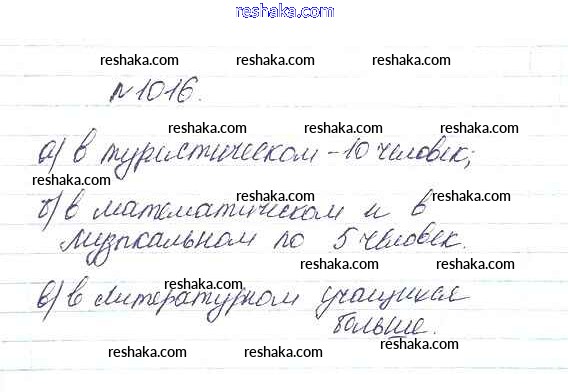 reshaka.com
reshaka.com reshaka.com reshaka.com
№1016.
reshaka.com reshaka.com
а) в туристическом - 10 человек;
reshaka.com
reshaka.com reshaka.com
б) в математическом и в
музыкальном по 5 человек.
reshaka.com reshaka.com
reshaka.com reshaka.com
в) в литературном учащихся
больше.
reshaka.com reshaka.com reshaka.com